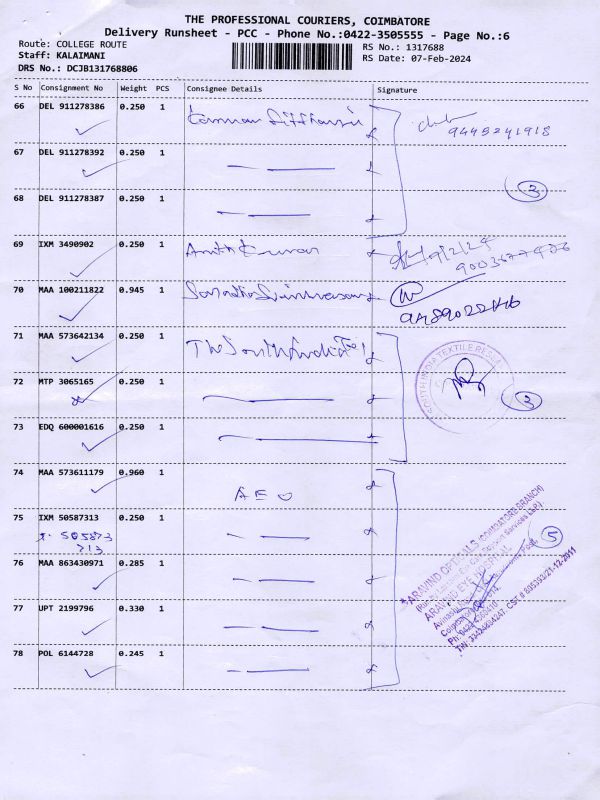 THE PROFESSIONAL COURIERS, COIMBATORE
Delivery Runsheet - PCC - Phone No.:0422-3505555 - Page No.:6
Route: COLLEGE ROUTE
Staff: KALAIMANI
DRS No.: DCJB131768806
RS No.: 1317688
RS Date: 07-Feb-2024
S No Consignment No Weight PCS Consignee Details Signature
66 DEL 911278386 0.250 1
9445241918
67 DEL 911278392 0.250 1
3
68 DEL 911278387 0.250 1
69 IXM 3490902 0.250 1 Amith Kumar
70 MAA 100211822 0.945 1
71 MAA 573642134 0.250 1 The South India
SOUTH INDIA TEXTILE RESEA
72 MTP 3065165 0.250 1
3
73 EDQ 600001616 0.250 1
74 MAA 573611179 0.960 1
75 IXM 50587313 0.250 1
505873
713
5
ARAVIND OPTICALS (COIMBATORE BRANCH)
ARAVIND EYE HOSPITAL
76 MAA 863430971 0.285 1
77 UPT 2199796 0.330 1
78 POL 6144728 0.245 1